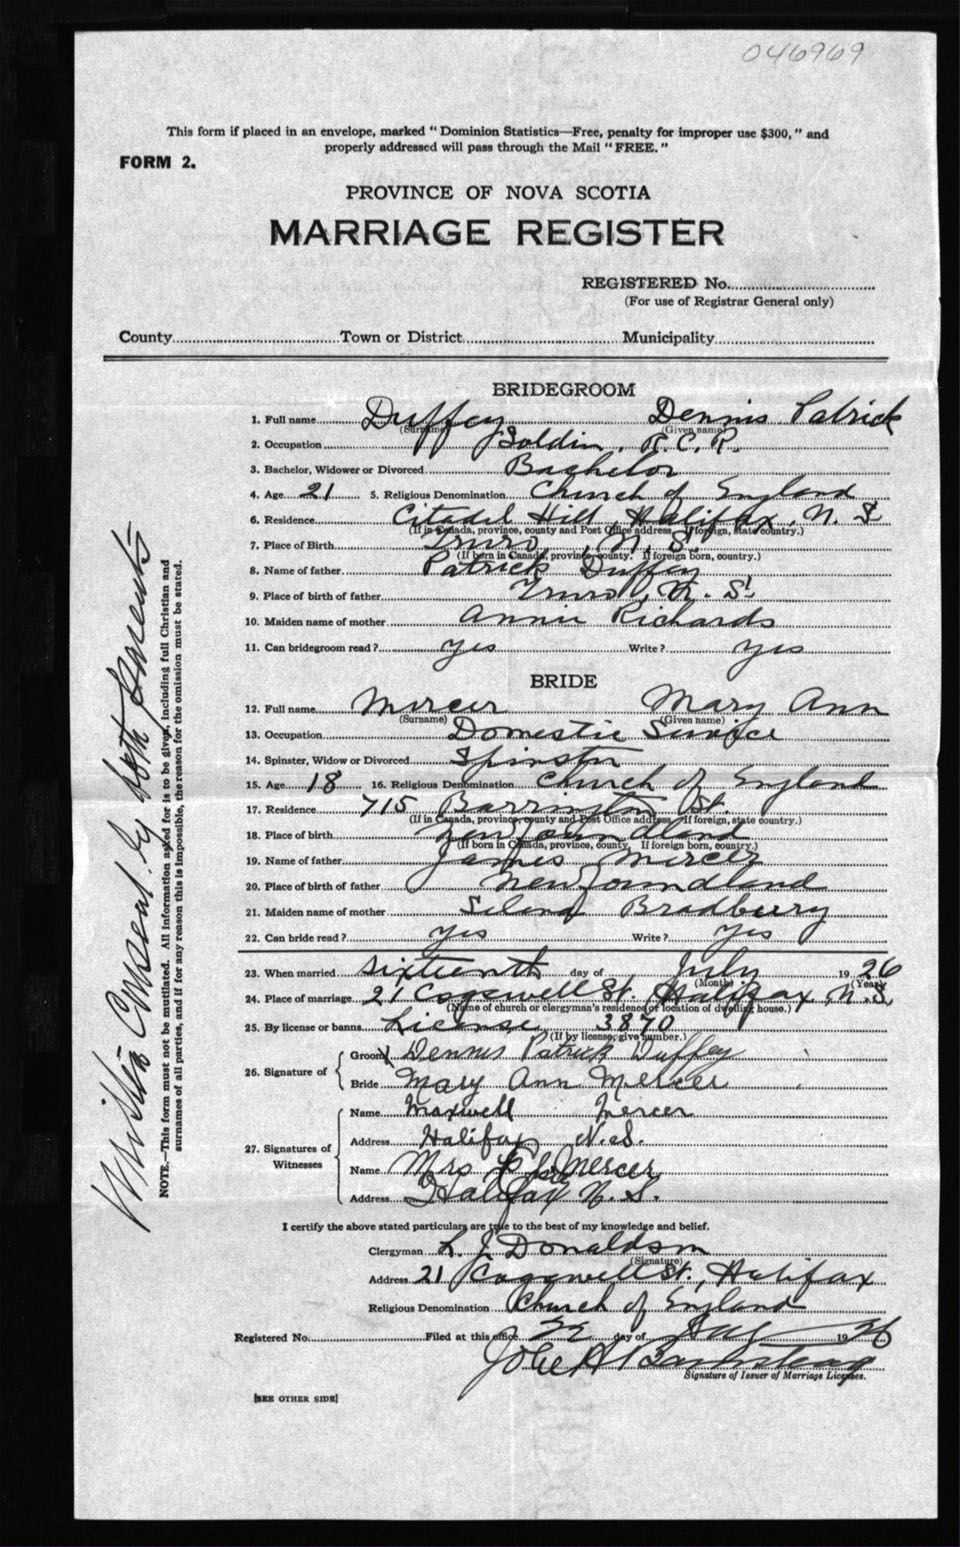 046969
This form if placed in an envelope, marked "Dominion Statistics—Free, penalty for improper use $300," and
properly addressed will pass through the Mail "FREE."
FORM 2.
PROVINCE OF NOVA SCOTIA
MARRIAGE REGISTER
REGISTERED No.
(For use of Registrar General only)
County Town or District Municipality
BRIDEGROOM
1. Full name Duffey Dennis Patrick
(Surname) (Given name)
2. Occupation R.C.R.
3. Bachelor, Widower or Divorced Bachelor
4. Age 21 5. Religious Denomination Church of England
6. Residence Citadel Hill, Halifax, N.S.
(If in Canada, province, county and Post Office address. If foreign, state country.)
7. Place of Birth Truro, N.S.
(If born in Canada, province, county. If foreign born, country.)
8. Name of father Patrick Duffey
9. Place of birth of father Truro, N.S.
10. Maiden name of mother Annie Richards
11. Can bridegroom read? yes Write? yes
BRIDE
12. Full name Mercer Mary Ann
(Surname) (Given name)
13. Occupation Domestic Service
14. Spinster, Widow or Divorced Spinster
15. Age 18 16. Religious Denomination Church of England
17. Residence 715 Barrington St.
(If in Canada, province, county and Post Office address. If foreign, state country.)
18. Place of birth Newfoundland
(If born in Canada, province, county. If foreign born, country.)
19. Name of father James Mercer
20. Place of birth of father Newfoundland
21. Maiden name of mother Bradbury
22. Can bride read? yes Write? yes
23. When married sixteenth day of July 1926
(Month) (Year)
24. Place of marriage 21 Cogswell St. Halifax, N.S.
(Name of church or clergyman's residence or location of dwelling house.)
25. By license or banns License 3870
(If by license, give number.)
26. Signature of
Groom Dennis Patrick Duffey
Bride Mary Ann Mercer
27. Signatures of Witnesses
Name Maxwell Mercer
Address Halifax N.S.
Name Mrs Mercer
Address Halifax N.S.
I certify the above stated particulars are true to the best of my knowledge and belief.
Clergyman L. J. Donaldson
(Signature)
Address 21 Cogswell St., Halifax
Religious Denomination Church of England
Registered No. Filed at this office 22 day of 1926
Signature of Issuer of Marriage Licenses.
[SEE OTHER SIDE]
by both Parents
NOTE.—This form must not be mutilated. All information asked for is to be given, including full Christian and
surnames of all parties, and if for any reason this is impossible, the reason for the omission must be stated.